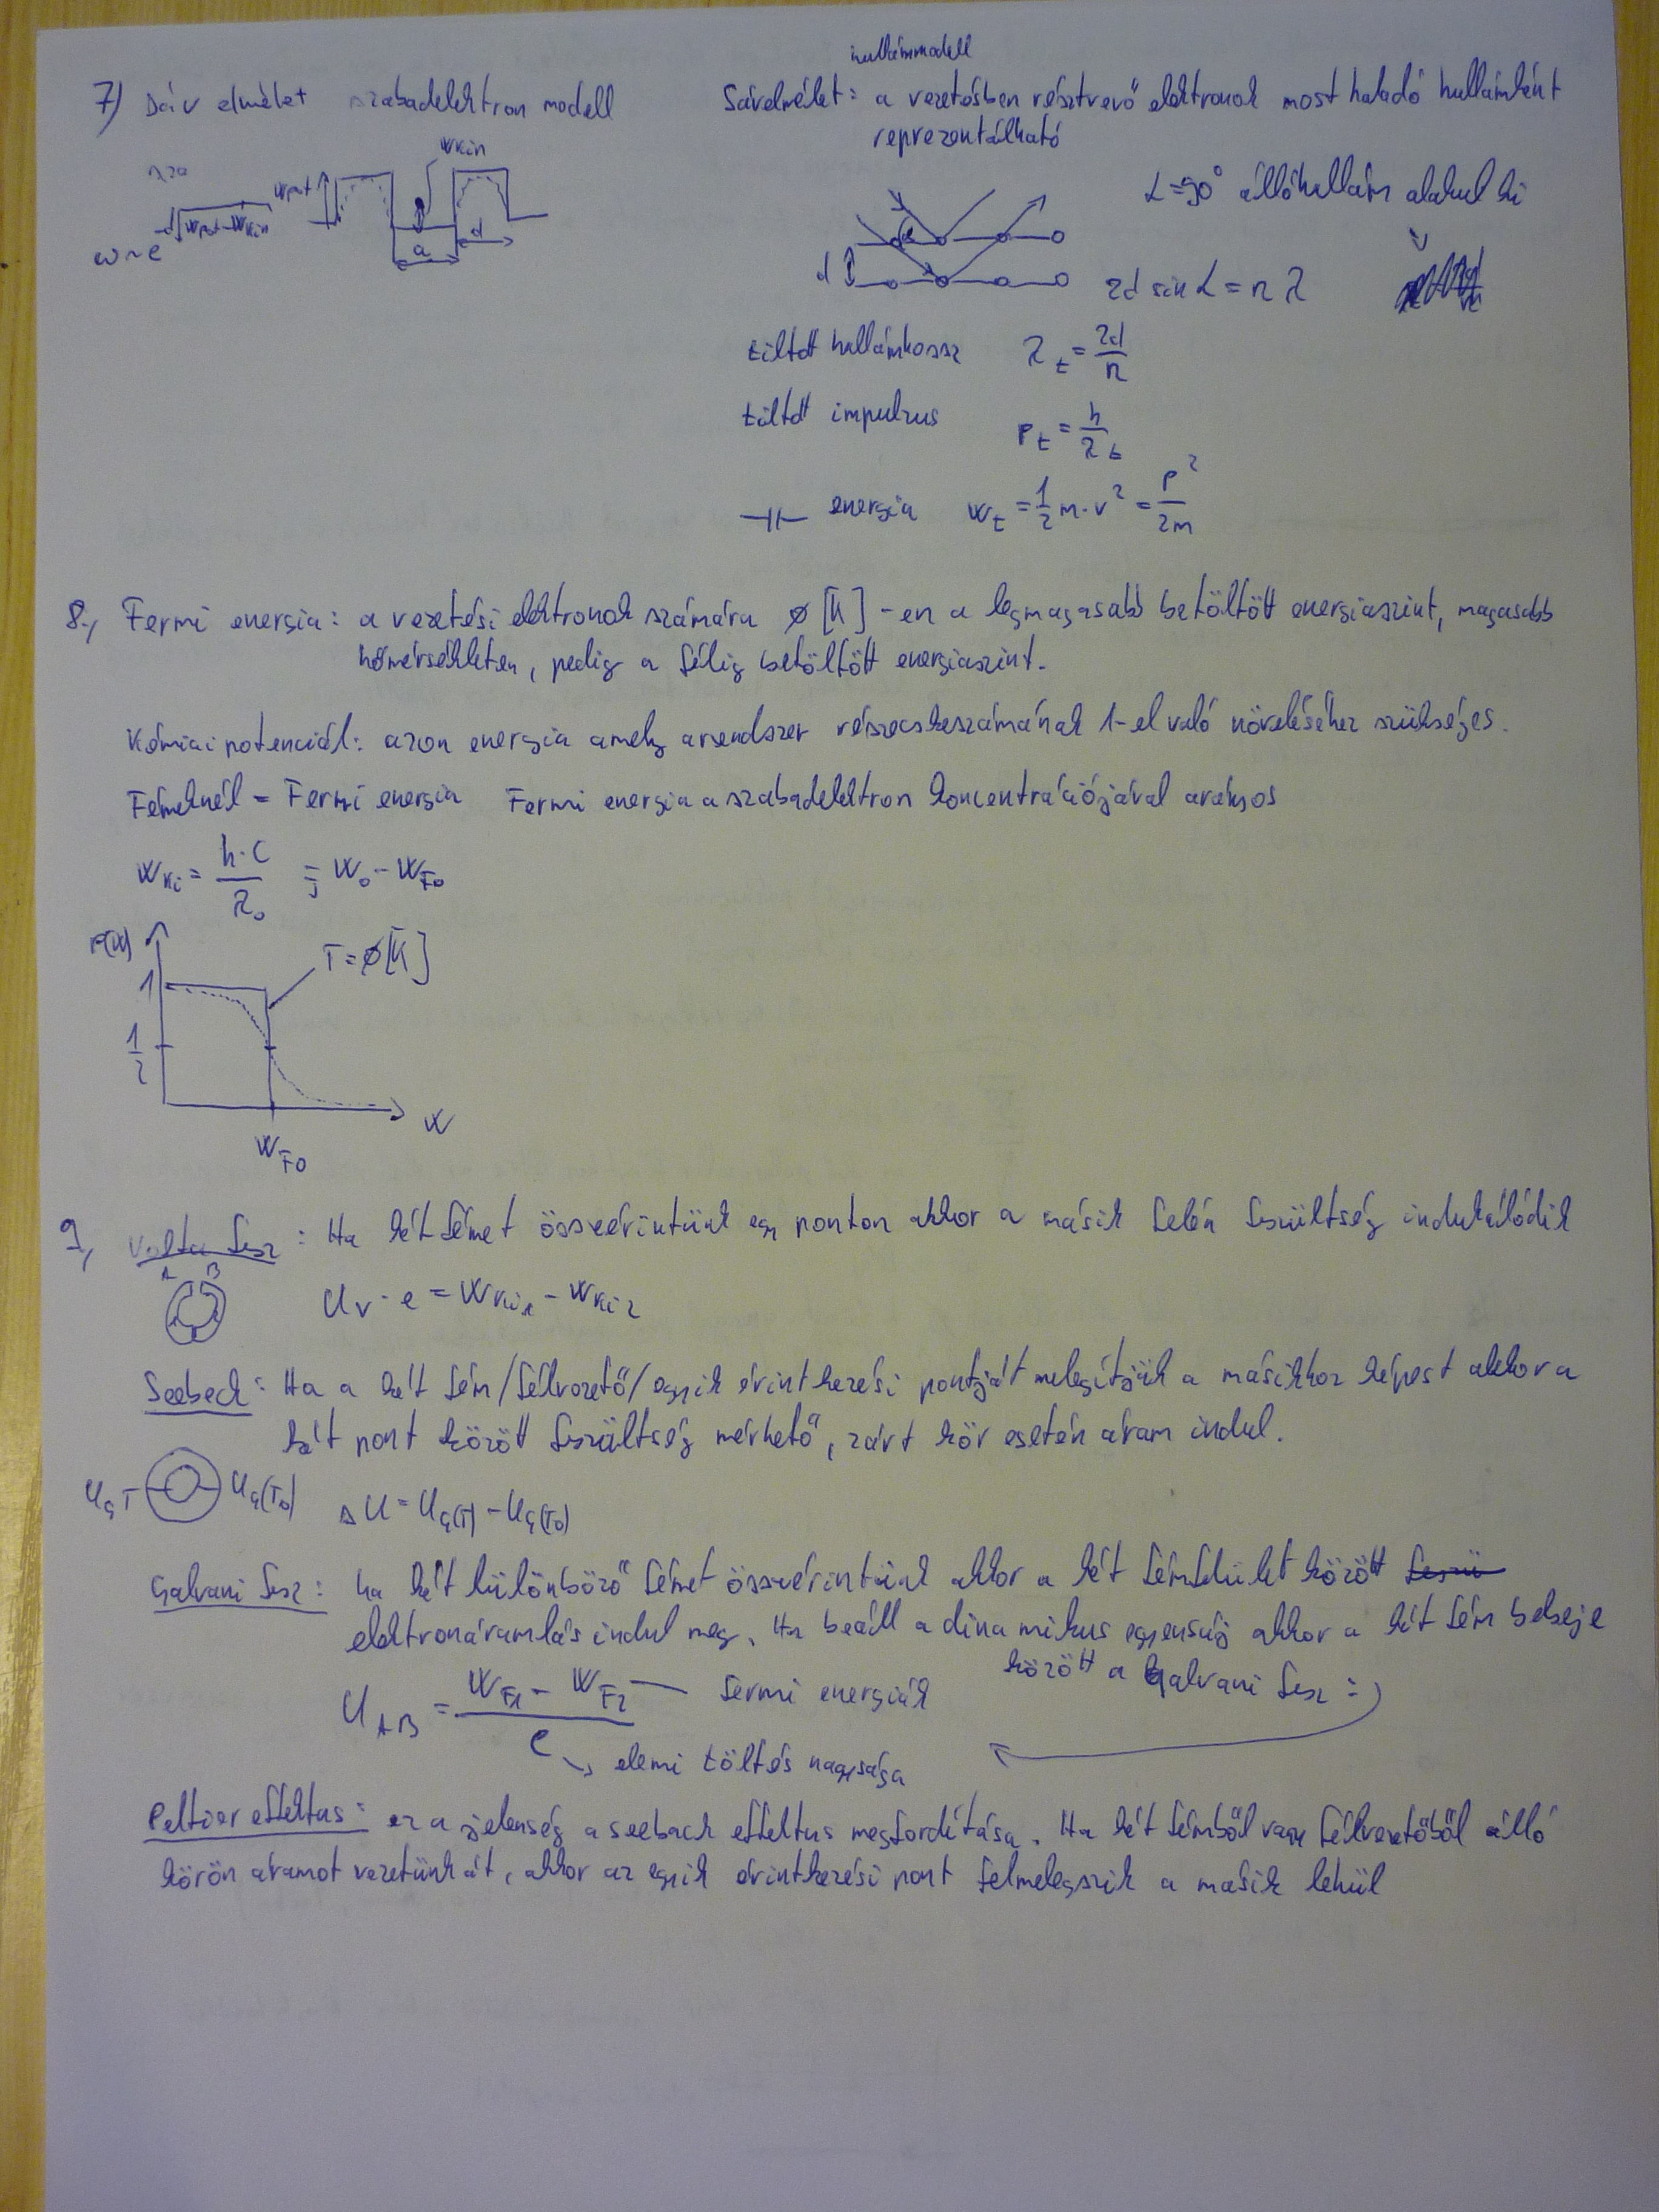 7) Sáv elmélet szabadelektron modell
Wkin
Wpot
ω ~ e^-d√(Wpot-Wkin)
a
d
hullámmodell
Sávelmélet: a vezetésben résztvevő elektronok most haladó hullámként
reprezentálható
α=90° állóhullám alakul ki
d
α
2d sin α = n λ
tiltott hullámhossz λt = 2d/n
tiltott impulzus pt = h/λt
energia Wt = 1/2 m·v² = p²/2m
8., Fermi energia: a vezetési elektronok számára ø [K]-en a legmagasabb betöltött energiaszint, magasabb
hőmérsékleten, pedig a félig betöltött energiaszint.
Kémiai potenciál: azon energia amely a rendszer részecskeszámának 1-el való növeléséhez szükséges.
Fémeknél = Fermi energia Fermi energia a szabadelektron koncentrációjával arányos
Wki = h·c/λ₀ ; = W₀ - WF0
F(W)
1
1/2
T=ø[K]
W
WF0
9, Volta fesz: Ha két fémet összeérintünk egy ponton akkor a másik felén feszültség indukálódik
A B
Uv·e = Wki1 - Wki2
Seebeck: Ha a két fém/félvezető/egyik érintkezési pontját melegítjük a másikhoz képest akkor a
két pont között feszültség mérhető, zárt kör esetén áram indul.
UgT Ug(T0) ΔU = Ug(T) - Ug(T0)
Galvani fesz: ha két különböző fémet összeérintünk akkor a két fémfelület között feszü
elektronáramlás indul meg. Ha beáll a dinamikus egyensúly akkor a két fém belseje
között a Galvani fesz:
UAB = (WF1 - WF2)/e fermi energiák
elemi töltés nagysága
Peltier effektus: ez a jelenség a seeback effektus megfordítása. Ha két fémből vagy félvezetőből álló
körön áramot vezetünk át, akkor az egyik érintkezési pont felmelegszik a másik lehűl